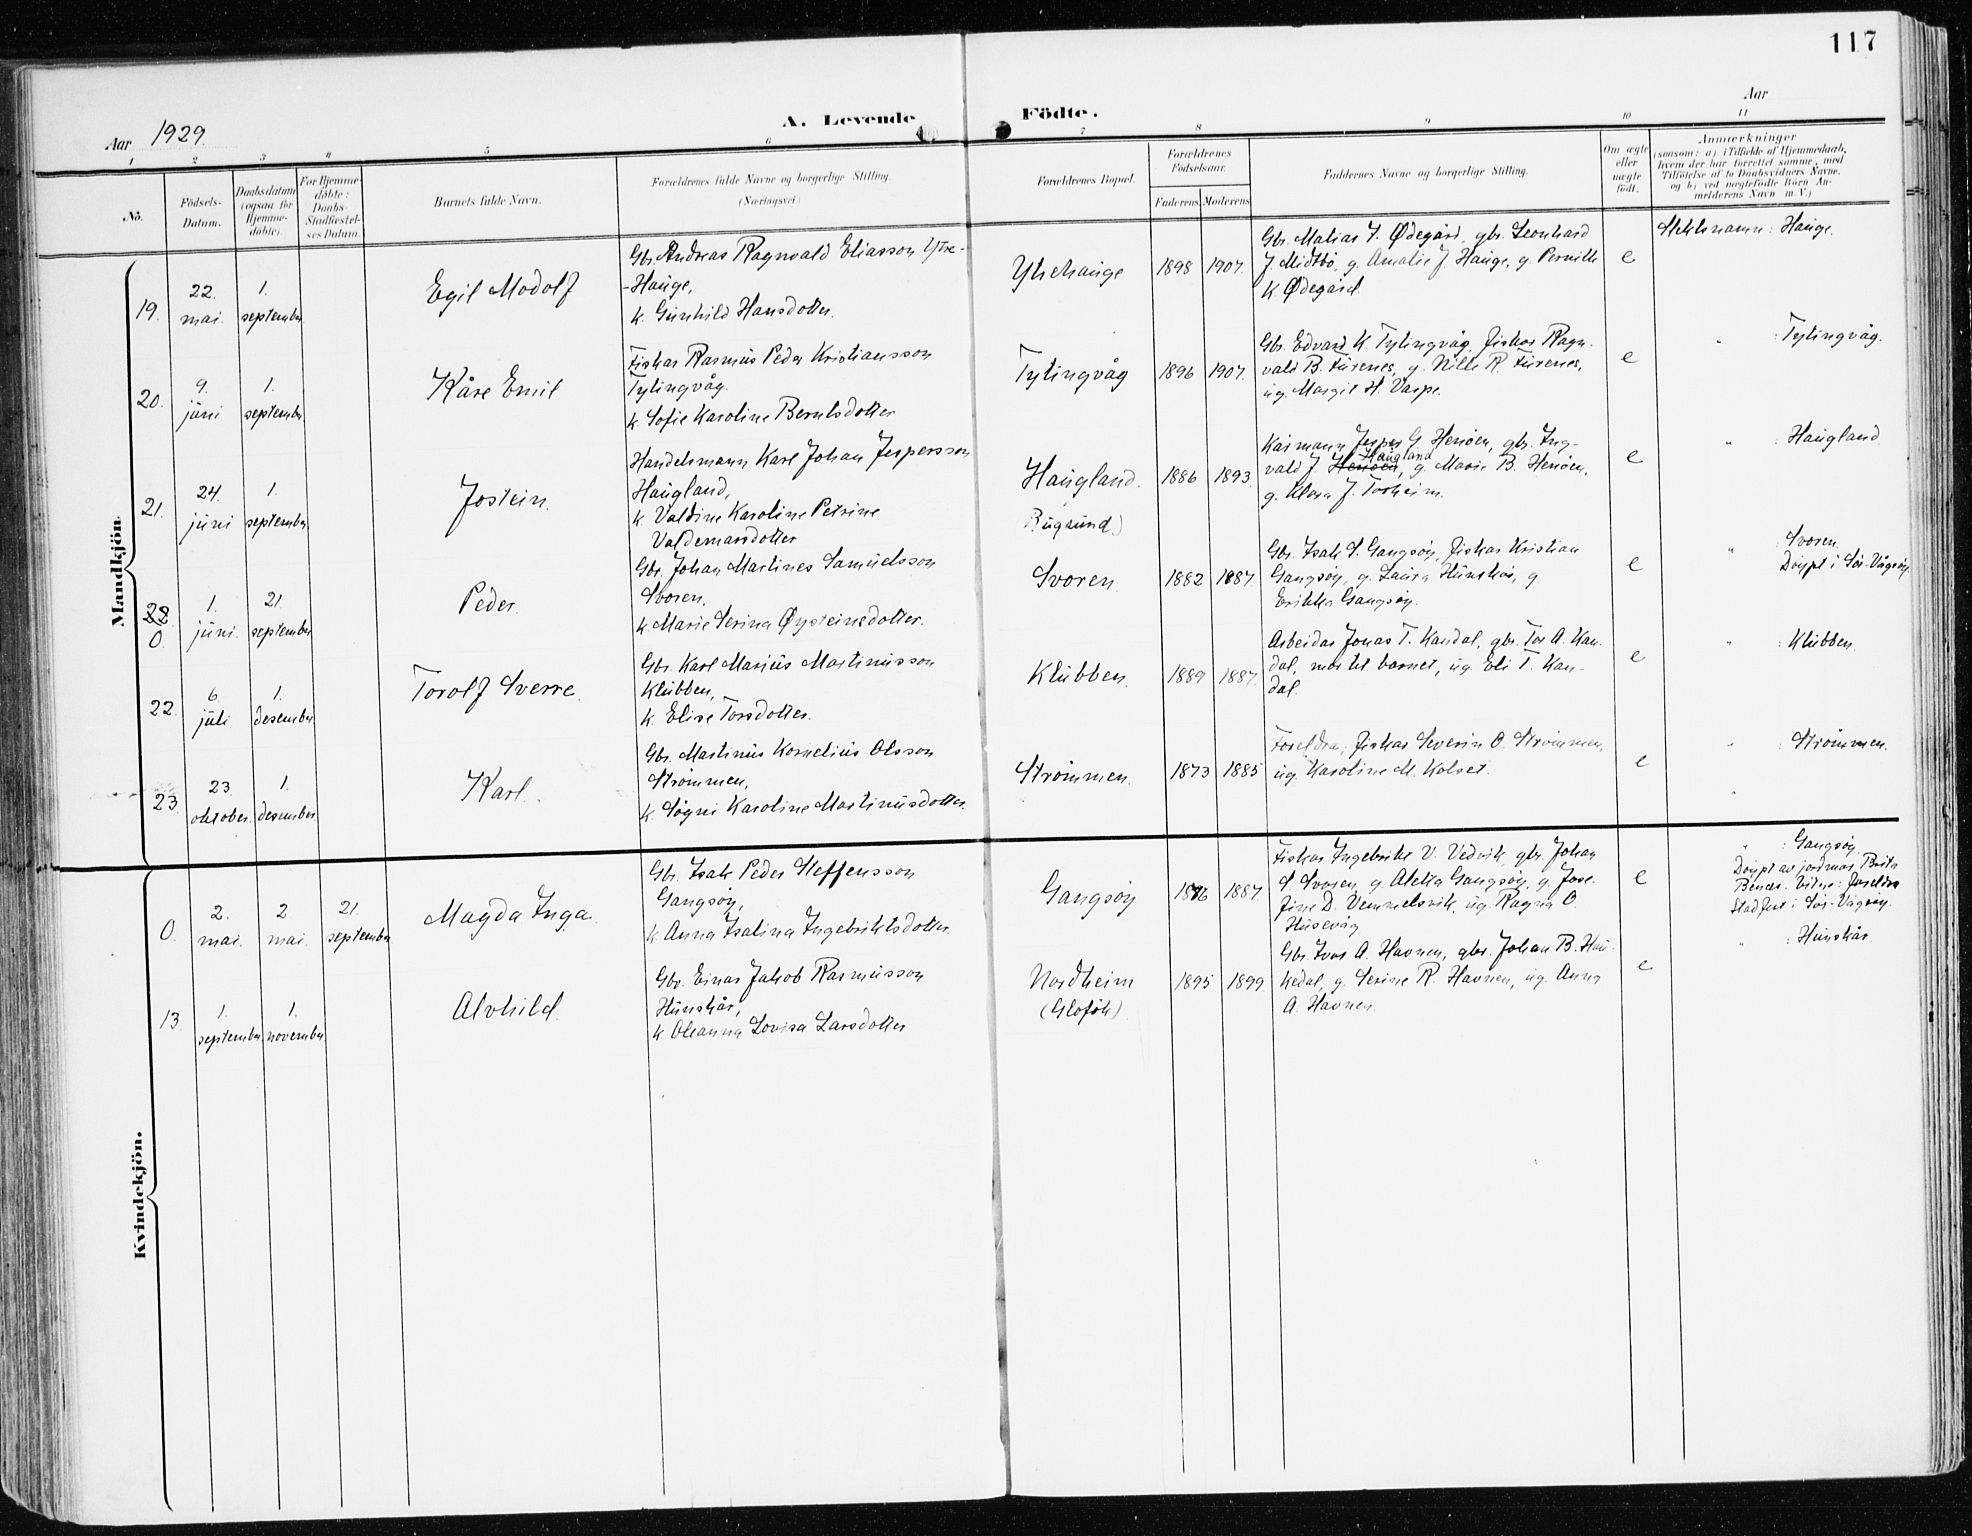 117
Aar 1929.
A. Levende Födte.
Aar
1 2 3 4 5 6 7 8 9 10 11
No.
Födsels-Datum.
Daabsdatum (ogsaa for Hjemme-døbte).
For Hjemme-døbte: Daabs-Stadfæstel-ses Datum.
Barnets fulde Navn.
Forældrenes fulde Navne og borgerlige Stilling.
(Næringsvei.)
Forældrenes Bopæl.
Forældrenes Fødselsaar.
Faderens. Moderens.
Faddernes Navne og borgerlige Stilling.
Om ægte eller uægte født.
Anmærkninger
(saasom: a) i Tilfælde af Hjemmedaab,
hvem der har forrettet samme, med
Tilføielse af to Daabsvidners Navne.
og b) ved uægtefødte Börn An-
melderens Navn m. V.)
Mandkjön.
19.
22. mai.
1. september
Egil Modolf
Gbr. Andreas Ragnvald Eliasson Ytre-
-Hauge,
k. Gunhild Hansdotter.
Ytrehauge
1898 1907.
Gbr. Matias J. Ødegård, gbr. Leonhard
J. Midtbø, g. Amalie J. Hauge, g. Pernille
K. Ødegård.
e
Stehlsnamn: Hauge.
20.
9. juni
1. september
Kåre Emil
Fiskar Rasmus Peder Kristiansson
Tytingvåg.
k. Sofie Karoline Berntsdotter
Tytingvåg
1896 1907.
Gbr. Edvard K. Tytingvåg, fiskar Ragn-
vald B. Furenes, g. Nille R. Furenes,
ug. Margit H. Varpe.
e
" : Tytingvåg.
21.
24. juni
1. september.
Jostein.
Handelsmann Karl Johan Jespersson
Haugland,
k. Valdine Karoline Petrine
Valdemarsdotter
Haugland.
Rugsund)
1886 1893.
Kårmann Jesper G. Henøen, gbr. Ing-
vald J. Henøen Haugland, g. Marie B. Henøen,
g. Klara J. Torheim.
e
" : Haugland.
22.
0.
1. juni.
21. september
Peder.
Gbr. Johan Martines Samuelsson
Svoren,
k. Marie Serina Øysteinsdotter.
Svoren.
1882 1887
Gbr. Isak S. Gangsøy, fiskar Kristian
Gangsøy, g. Laura Hunskår, g
Erikka Gangsøy.
e
" : Svoren.
Døypt i Sør-Vågsøy
22.
6. juli
1. desember.
Torolf Sverre.
Gbr. Karl Marius Martinusson
Klubben,
k. Elise Torsdotter.
Klubben.
1889 1887.
Arbeidar Jonas T. Kandal, gbr. Tor A. Kan-
dal, mor til barnet, ug. Eli T. Kan-
dal.
e
" : Klubben.
23.
23. oktober.
1. desember.
Karl.
Gbr. Martinus Kornelius Olsson
Strømmen,
k. Søgni Karoline Martinusdotter.
Strømmen.
1873 1885
Foreldra; fiskar Severin O. Strømmen,
ug. Karoline M. Kolset.
e
" : Strømmen.
Kvindekjön.
0.
2. mai.
2 mai.
21. september
Magda Inga.
Gbr. Isak Peder Steffensson
Gangsøy,
k. Anna Isalina Ingebriktsdotter.
Gangsøy
1887
Fiskar Ingebrikt V. Vedvik, gbr. Johan
S. Svoren, g. Aletta Gangsøy, g. Jose-
fine D. Vemmelsvik, ug. Ragna O.
Husevåg
e
" : Gangsøy.
Døypt av jordmor Brita
Vitne: foreldra
Stadfest i Sør-Vågsøy.
13.
1. september.
1. november.
Alvhild.
Gbr. Einar Jakob Rasmusson
Hunskår,
k Oleanna Lovisa Larsdotter
Nordheim
1895 1899
Gbr. Ivar A. Havnen, gbr. Johan B. Hau-
kedal, g. Serine R. Havnen, ug. Anna
A. Havnen.
e
" : Hunskår.